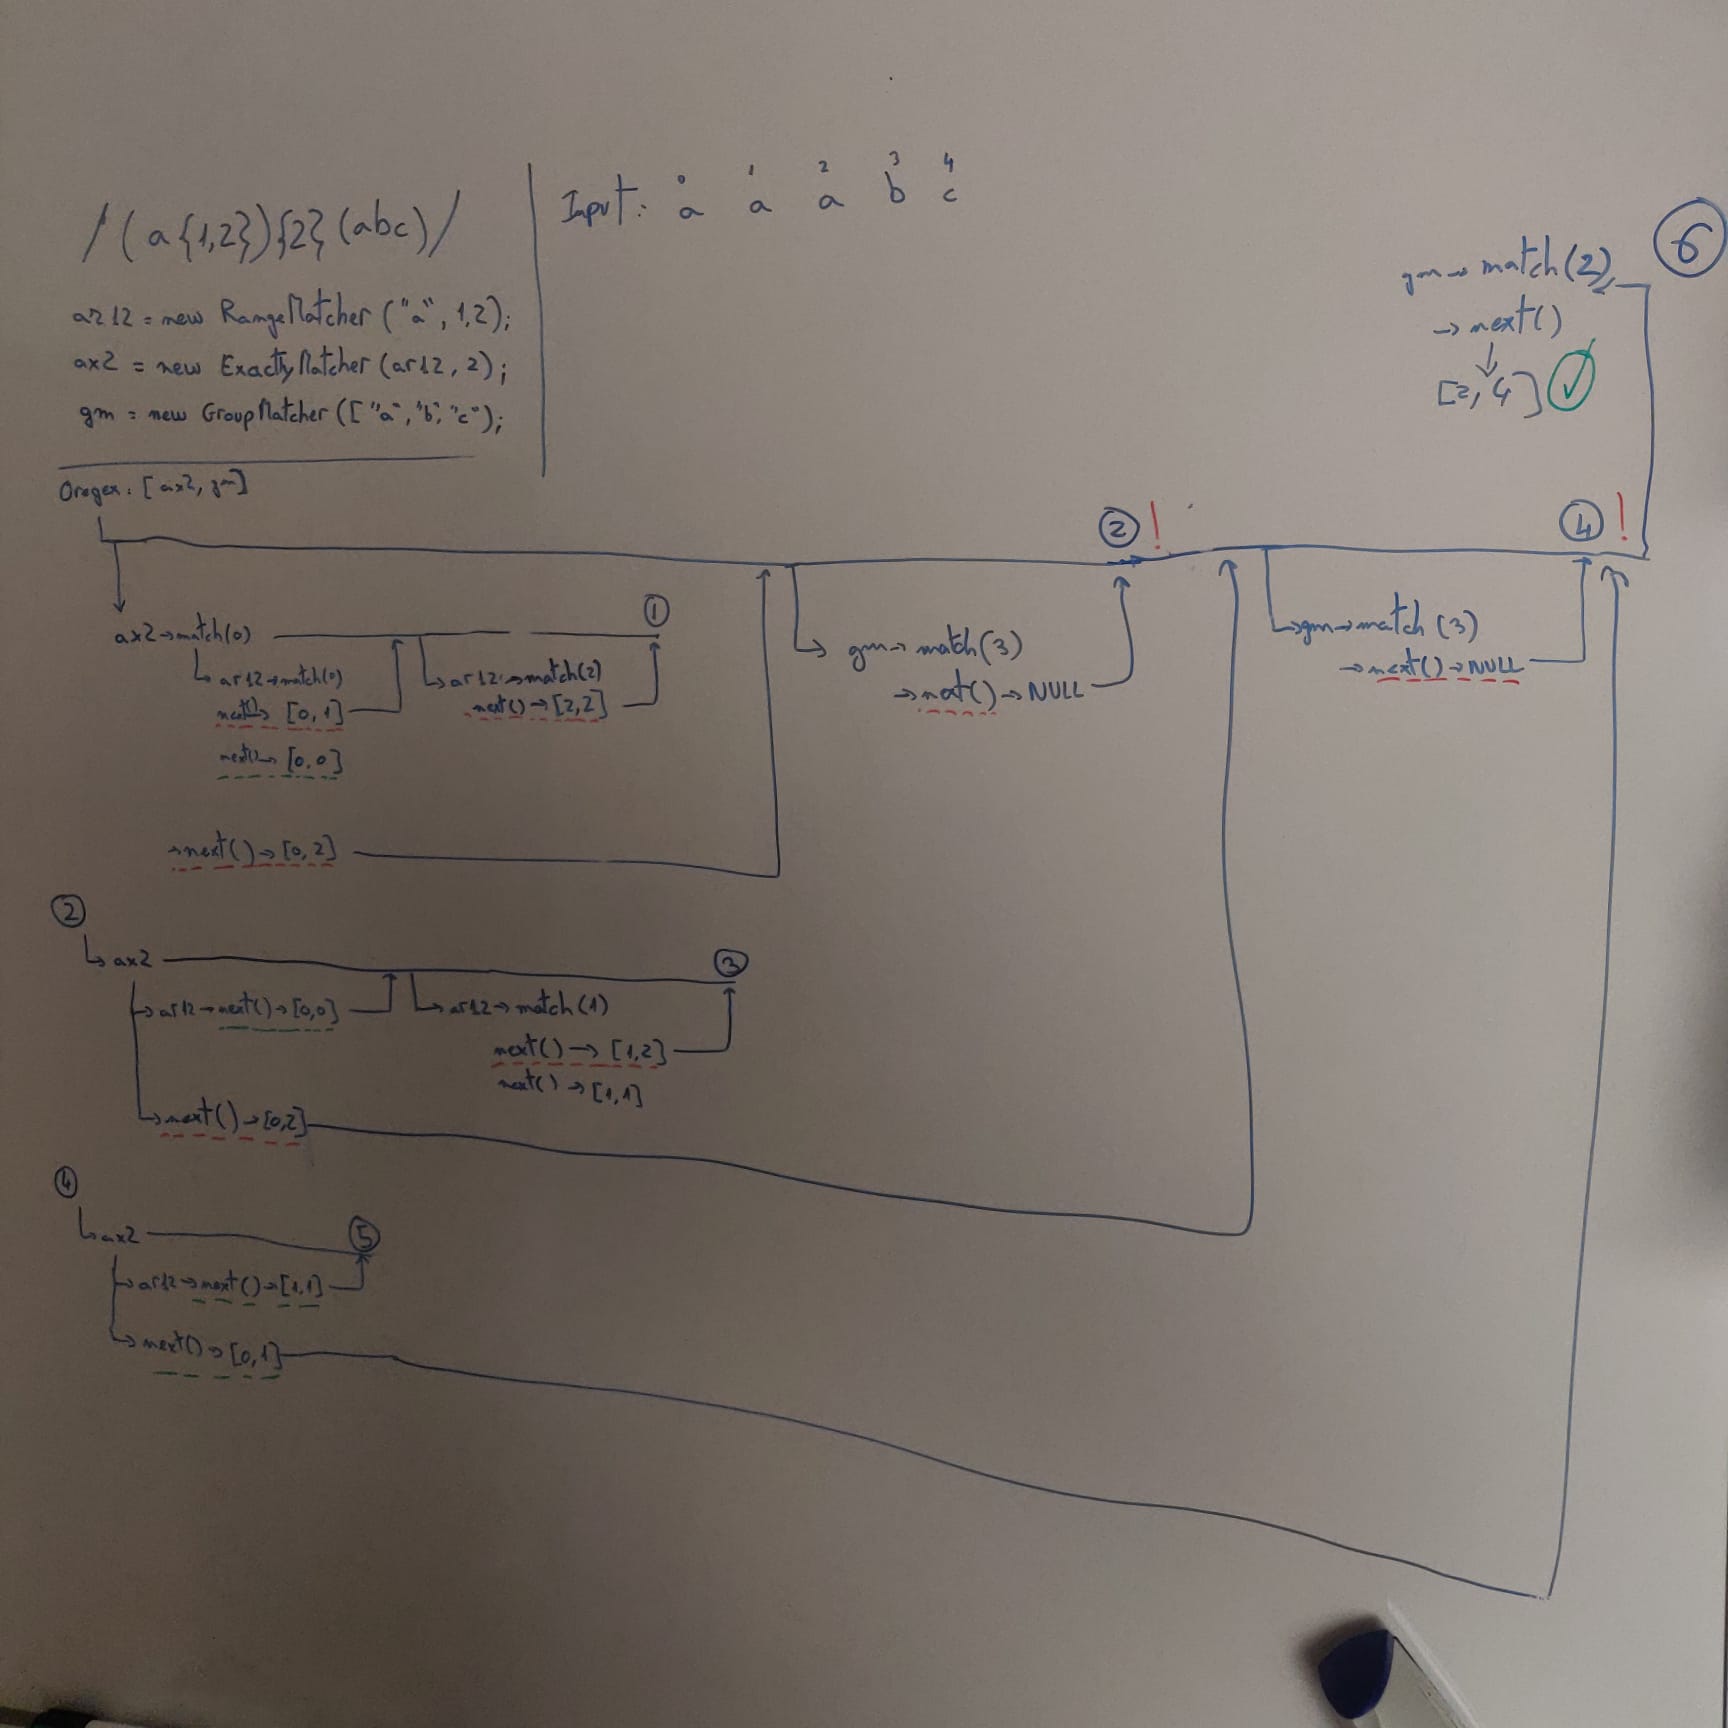 /(a{1,2}){2}(abc)/
ar12 = new RangeMatcher("a", 1,2);
ax2 = new ExactlyMatcher(ar12, 2);
gm = new GroupMatcher(["a","b","c");
Input: a a a b c
0 1 2 3 4
Oregex: [ax2, gm]
6
gm→match(2)
→next()
[2,4] ✓
2 !
4 !
ax2→match(0)
1
ar12→match(0)
next()→ [0,1]
next()→ [0,0]
ar12→match(2)
next()→[2,2]
→next()→[0,2]
gm→match(3)
→next()→NULL
gm→match(3)
→next()→NULL
2
ax2
3
ar12→next()→[0,0]
ar12→match(1)
next()→[1,2]
next()→[1,1]
next()→[0,2]
4
ax2
5
ar12→next()→[1,1]
next()→[0,1]